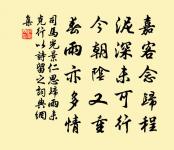 嘉客念歸程
泥深未可行
今朝陰又重
春雨亦多情
司馬光景仁思歸雨未
克行以詩留之詞典網
集